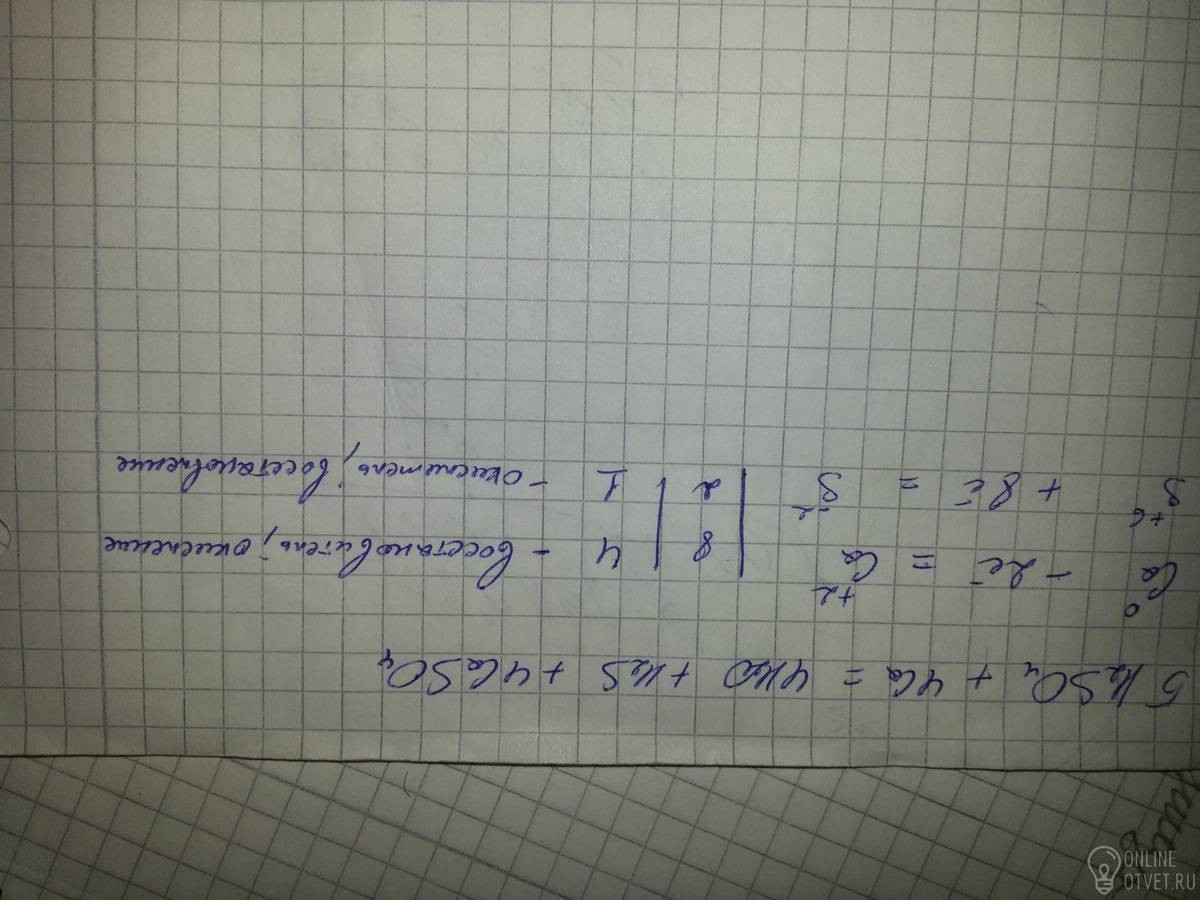 5 H₂SO₄ + 4Ca = 4H₂O + H₂S + 4CaSO₄
Ca⁰ - 2e⁻ = Ca⁺² | 8 | 4 - восстановитель, окисление
S⁺⁶ + 8e⁻ = S⁻² | 2 | 1 - окислитель, восстановление
ONLINE
OTVET.RU